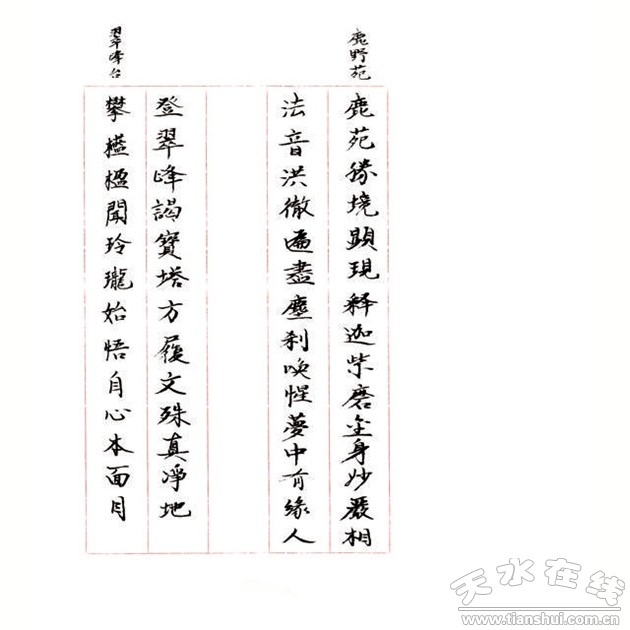 鹿野苑
鹿苑勝境顯現释迦紫磨金身妙嚴相
法音洪徹遍盡塵刹唤惺夢中有緣人
翠峰台
登翠峰謁寶塔方履文殊真淨地
攀櫙楹聞玲瓏始悟自心本面目
天水在线
www.tianshui.com.cn